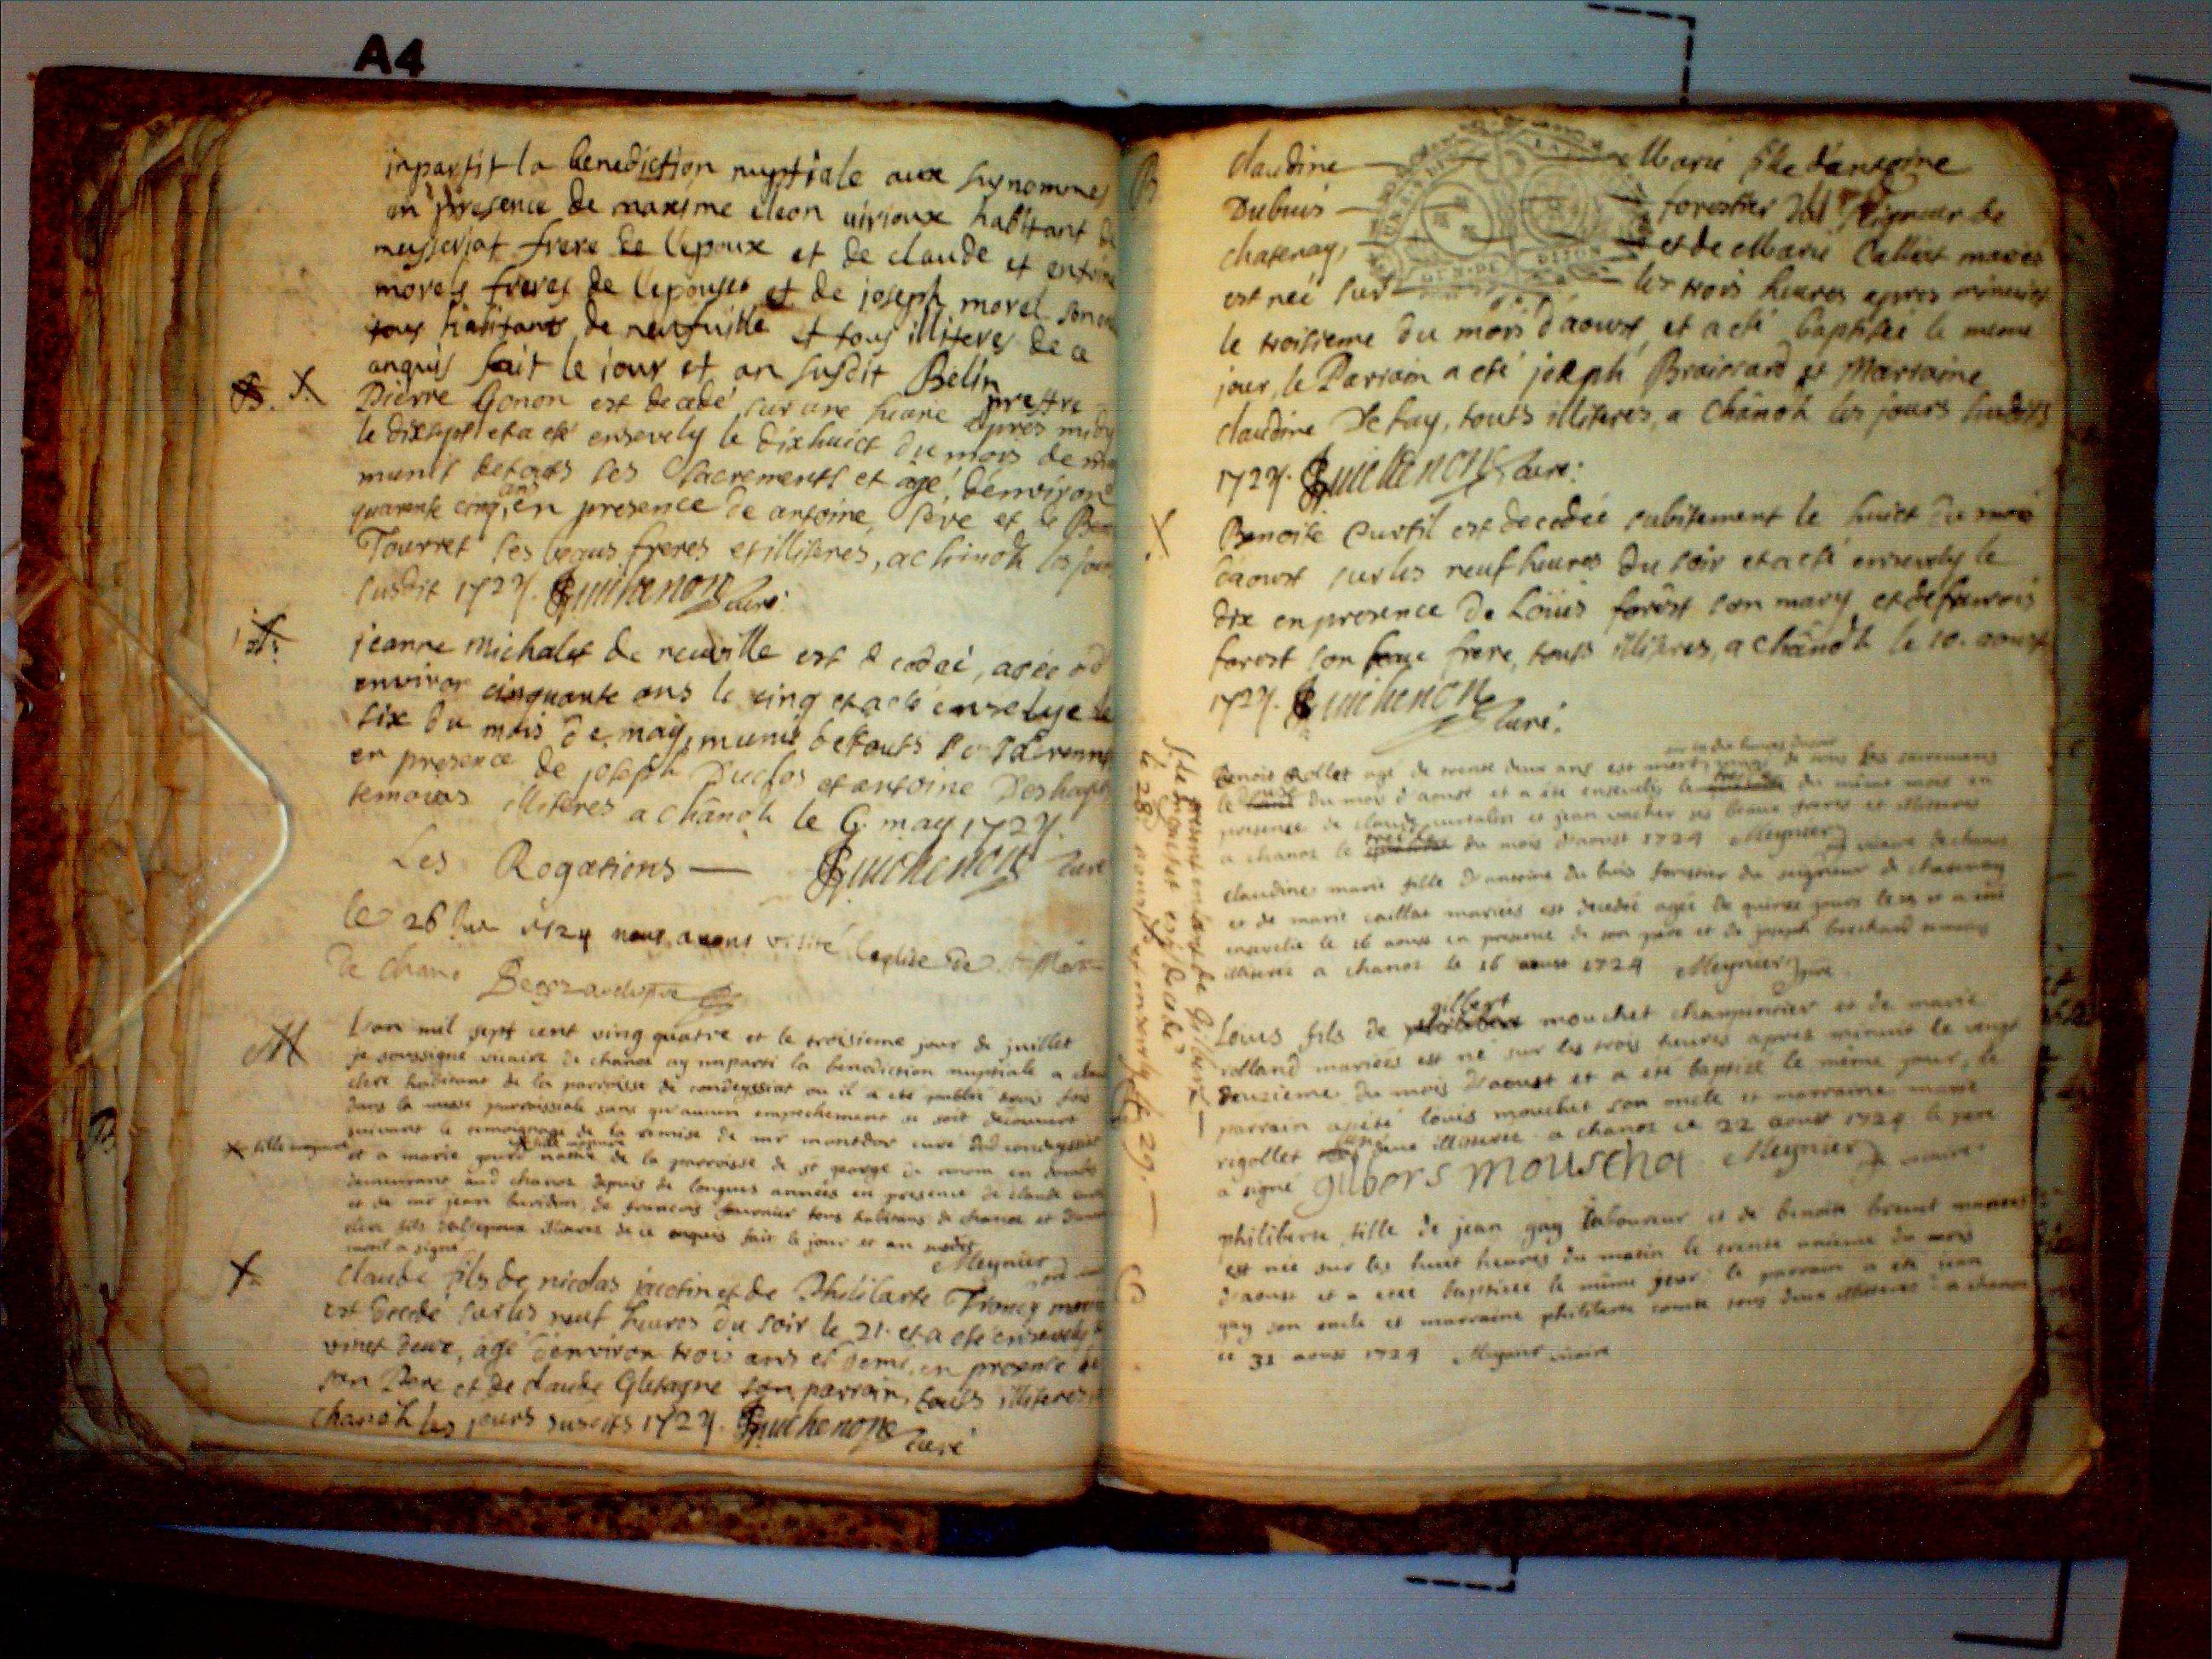 A4
inpartit la benediction nuptiale aux susnommes
en presence de maxime cleon virioux habitant de
meysseriat frere de l'epoux et de claude et entoine
morels freres de l'epouse et de joseph morel son
tous habitans de neufville et tous illiteres de ce
anquis fait le jour et an susdit Belin prestre
Pierre Gonon est decedé sur une heure apres midy
le dixsept et a eté ensevely le dixhuict du mois de
munit de touts les sacrements et agé d'environ
quarante cinq ans, en presence de antoine, pere et de
Tourret ses beaux freres et illiteres, a chànoh les jours
susdit 1724. Guichenon curé.
jeanne michalet de neuville est decedeé, ageé
environ cinquante ans le cinq et a eté ensevelye le
six du mois de may, munie de touts
en presence de joseph Duclos et antoine
temoins illiteres a chânoh le 6. may 1724.
Les Rogations — Guichenon curé
le 26 1724 nous avons visité l'eglise de
de chano
M L'an mil sept cent vingt quatre et le troisieme jour de juillet
je soussigné vicaire de chanoz ay imparti la benediction nuptiale a
clere habitant de la parroisse de condeyssiat ou il a eté publié trois fois
dans la messe parroissiale sans qu'aucun empechement se soit decouvert
suivant le temoignage de la remise de mr montdor curé dud condeyssiat
fille majeure
et a marie native de la parroisse de st george de renom en dombe
demeurante aud chanoz depuis de longues années en presence de claude
et de mr jean de francois fournier tous habitans de chanoz et
clere fils illiteres de ce enquis fait le jour et an susdit
a signé Meynier
claude fils de nicolas jacotin et de Philiberte Troncy
est decede sur les neuf heures du soir le 21. et a eté ensevely
vinet deux, agé d'environ trois ans et demi, en presence de
son Pere et de claude Gletagne son parrain, touts illiteres
chanoh les jours susdits 1724. Guichenon curé
claudine Marie fille d'antoine
Dubuis forestier du seigneur de
chatenay, et de Marie Calliat mariés
est neé sur les trois heures apres minuict
le troisieme du mois d'aoust, et a eté baptiseé le meme
jour, le Parrain a eté joseph Braissard et Marraine
claudine Defay, touts illiteres, a chânoh les jours susdits
1724. Guichenon curé.
Benoite Curtil est decedeé subitement le huict du mois
d'aoust sur les neuf heures du soir et a eté ensevely le
dix en presence de Loüis forêst son mary et de francois
forest son frere, touts illiteres, a chânoh le 10. aoust
1724. Guichenon curé.
sur les dix heures du soir
Benoit Rollet agé de trente deux ans est mort de tous les sacremens
le du mois d'aoust et a eté ensevely le du même mois en
presence de claude curtalin et jean vacher ses beaux freres et illiteres
a chanoz le treize du mois d'aoust 1724 Meynier vicaire de chanoz
claudine marie fille d'antoine du buis forestier du seigneur de chatenay
et de marie caillat mariés est decedeé ageé de quinze jours le et a eté
ensevelie le 16 aoust en presence de son pere et de joseph brechard temoins
illiteres a chanoz le 16 aoust 1724 Meynier
gilbert
Louis fils de mouchet charpentier et de marie
rolland mariées est né sur les trois heures apres minuit le vingt
deuzieme du mois d'aoust et a eté baptisé le même jour, le
parrain a eté louis mouchet son oncle et marraine marie
rigollet illiterés a chanoz ce 22 aoust 1724 le pere
a signé gilbers mouscha Meynier vicaire
philiberte fille de jean gay laboureur et de benoite brevet mariées
est née sur les huit heures du matin le trente unieme du mois
d'aoust et a eté baptisée le même jour le parrain a eté jean
gay son oncle et marraine philiberte comte tous deux illiteres a chanoz
ce 31 aoust 1724 Meynier vicaire
present enfant de Gilbert
Mouschet est decedé
le 28 aoust et ensevely le 29.